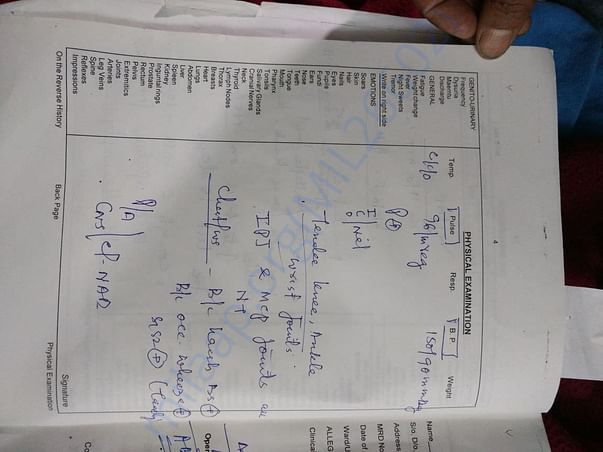 4
PHYSICAL EXAMINATION
Temp. Pulse Resp. B.P. Weight
C/o 96/mreg 150/90mmHg
P⊕
I
C Nil
Tender knee, Ankle
wrist joints.
IPJ & MCP joints are
NT
Chest/cvs - B/L harsh BS ⊕
B/L occ wheeze ⊕
S1S2 ⊕
P/A
CNS
NAD
GENITO-URINARY
Frequency
Dysuria
Discharge
GENERAL
Fatigue
Weight change
Fever
Night Sweats
Tremor
Write on right side
EMOTIONS
Scars
Skin
Hair
Nails
Eyes
Pupils
Fundi
Ears
Nose
Teeth
Tongue
Mouth
Pharynx
Tonsils
Salivary Glands
Cranial Nerves
Neck
Thyroid
Lymph Nodes
Thorax
Breasts
Heart
Lungs
Abdomen
Liver
Spleen
Kidney
Inguinal rings
Prostate
Rectum
Pelvis
Extremities
Joints
Arteries
Leg Veins
Spine
Reflexes
Impressions
Signature
On the Reverse History Back Page Physical Examination
Name
S/o. D/o.
Address
MRD No
Date of
Ward/U
ALLEG
Clinical
Oper
Co